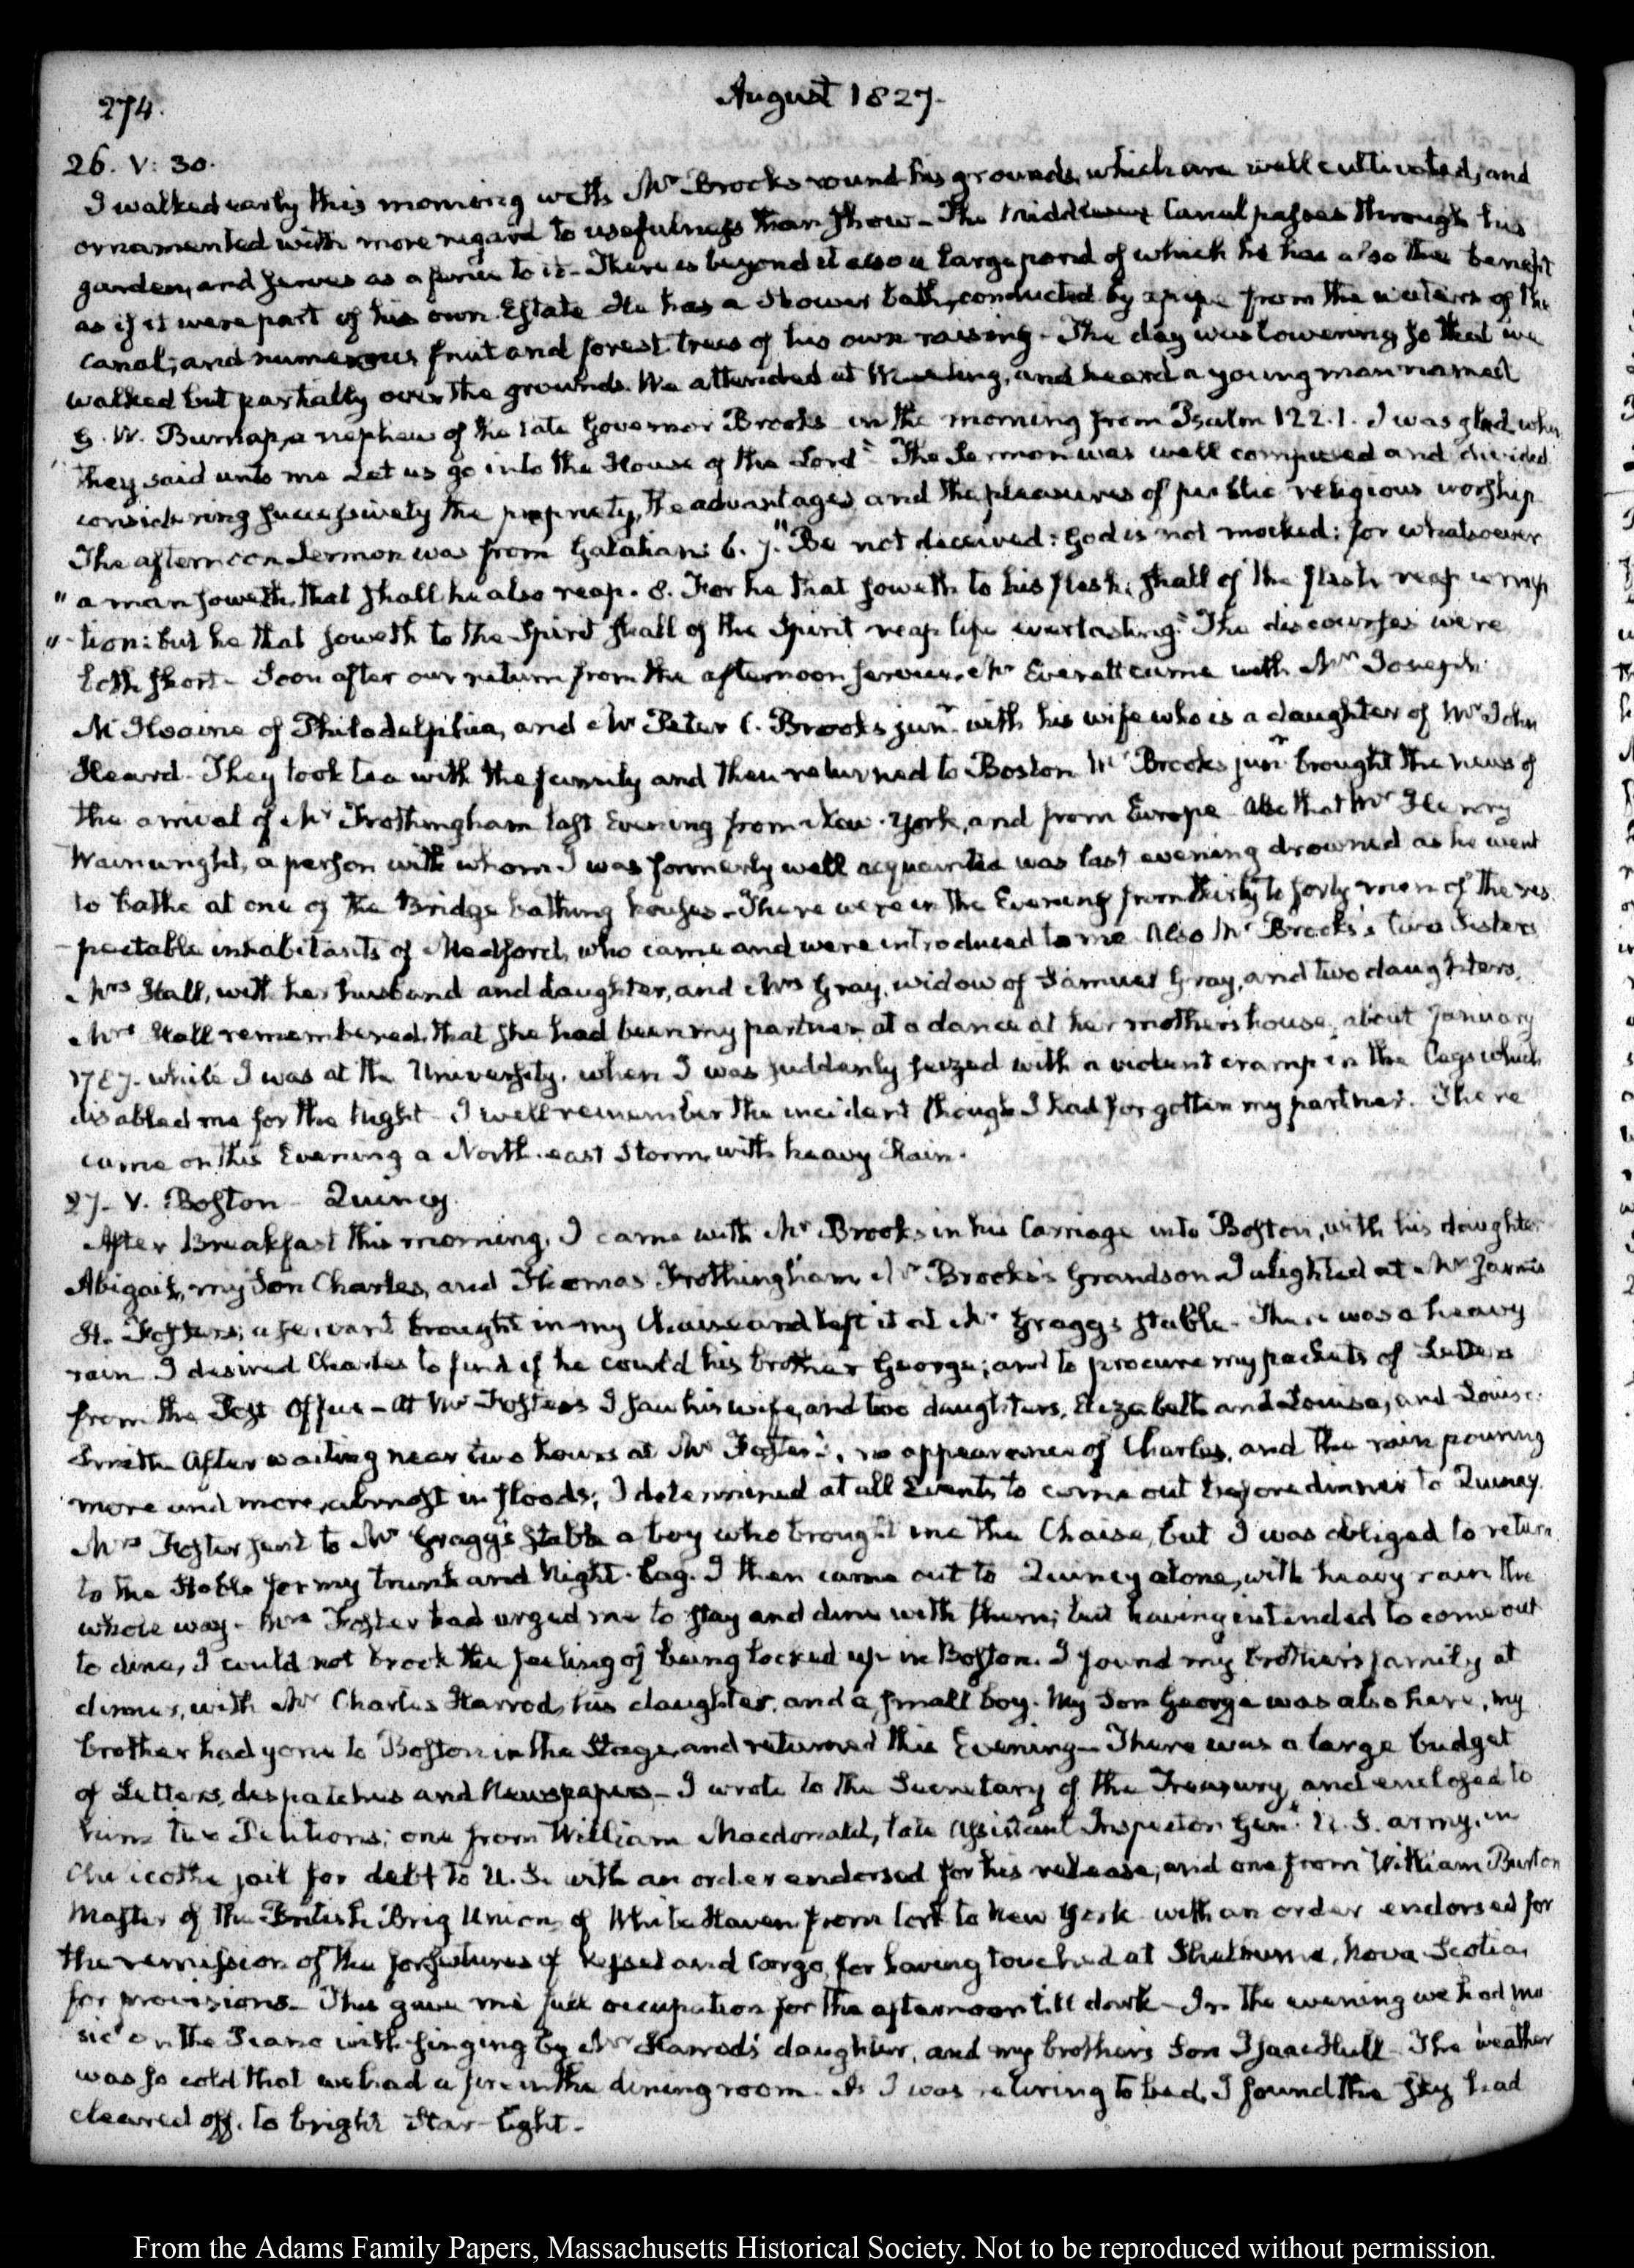 274.
August 1827.
26. V: 30.
I walked early this morning with Mr Brooks round his grounds, which are well cultivated, and
ornamented with more regard to usefulness than show - The Middlesex Canal passes through his
garden, and serves as a to it - There is beyond it also a large pond of which he has also the benefit
as if it were part of his own Estate He has a Shower bath, conducted by a pipe from the waters of the
canal; and numerous fruit and forest trees of his own raising - The day was lowering so that we
walked but partially over the grounds. We attended at Meeting, and heard a young man named
G. W. Burnap, a nephew of the late Governor Brooks - in the morning from Psalm 122.1. I was glad when
" they said unto me Let us go into the House of the Lord" The Sermon was well composed and divided
considering successively the propriety, the advantages and the pleasures of public religious worship
The afternoon Sermon was from Galatians 6. 7. "Be not deceived: God is not mocked: for whatsoever
" a man soweth, that shall he also reap. 8. For he that soweth to his flesh, shall of the flesh reap corrup
" -tion: but he that soweth to the Spirit shall of the Spirit reap life everlasting." The discourses were
both short - Soon after our return from the afternoon service, Mr Everett came with Mr Joseph
McIlvaine of Philadelphia, and Mr Peter C. Brooks junr with his wife who is a daughter of Mr John
Heard - They took tea with the family and then returned to Boston Mr Brooks junr brought the news of
the arrival of Mr Frothingham last Evening from New-York, and from Europe Also that Mr Henry
Wainwright, a person with whom I was formerly well acquainted was last evening drowned as he went
to bathe at one of the Bridge bathing houses - There were in the Evening from thirty to forty men of the res
-pectable inhabitants of Medford, who came and were introduced to me Also Mr Brooks's two Sisters
Mrs Hall, with her husband and daughter, and Mrs Gray, widow of Samuel Gray, and two daughters.
Mrs Hall remembered that she had been my partner at a dance at her mother's house, about January
1787. while I was at the University, when I was suddenly seized with a violent cramp in the Legs which
disabled me for the Night - I well remember the incident though I had forgotten my partner. There
came on this Evening a North-east Storm, with heavy Rain.
27. V. Boston - Quincy
After Breakfast this morning, I came with Mr Brooks in his Carriage into Boston, with his daughter
Abigail, my Son Charles, and Thomas Frothingham Mr Brooks's Grandson I alighted at Mr James
H. Foster's; a servant brought in my Chaise and left it at Mr Gragg's stable - There was a heavy
rain I desired Charles to find if he could his brother George; and to procure my packets of Letters
from the Post Office - At Mr Foster's I saw his wife, and two daughters, Elizabeth and Louisa, and Louisa
Smith - After waiting near two hours at Mr Foster's, no appearance of Charles, and the rain pouring
more and more, almost in floods; I determined at all Events to come out before dinner to Quincy.
Mrs Foster sent to Mr Gragg's Stable a boy who brought me the Chaise, but I was obliged to return
to the Stable for my trunk and Night-bag. I then came out to Quincy alone, with heavy rain the
whole way - Mrs Foster had urged me to stay and dine with them; but having intended to come out
to dine, I could not brook the feeling of being locked up in Boston. I found my brother's family at
dinner, with Mr Charles Harrod, his daughter, and a small boy. My Son George was also here, my
brother had gone to Boston in the Stage, and returned this Evening - There was a large budget
of Letters, despatches and Newspapers - I wrote to the Secretary of the Treasury, and enclosed to
him two Petitions; one from William Macdonald, late Assistant Inspector Genl U. S. army, in
Chilicothe jail for debt to U. S. with an order endorsed for his release; and one from William Burton
Master of the British Brig Union, of White Haven from Cork to New York with an order endorsed for
the remission of the forfeitures of Vessel and Cargo, for having touched at Shelburne, Nova Scotia
for provisions - This gave me full occupation for the afternoon till dark - In the evening we had mu
sic on the Piano with singing by Mr Harrod's daughter, and my brother's Son Isaac Hull - The weather
was so cold that we had a fire in the dining room. As I was retiring to bed, I found the sky had
cleared off, to bright Star-light -
From the Adams Family Papers, Massachusetts Historical Society. Not to be reproduced without permission.